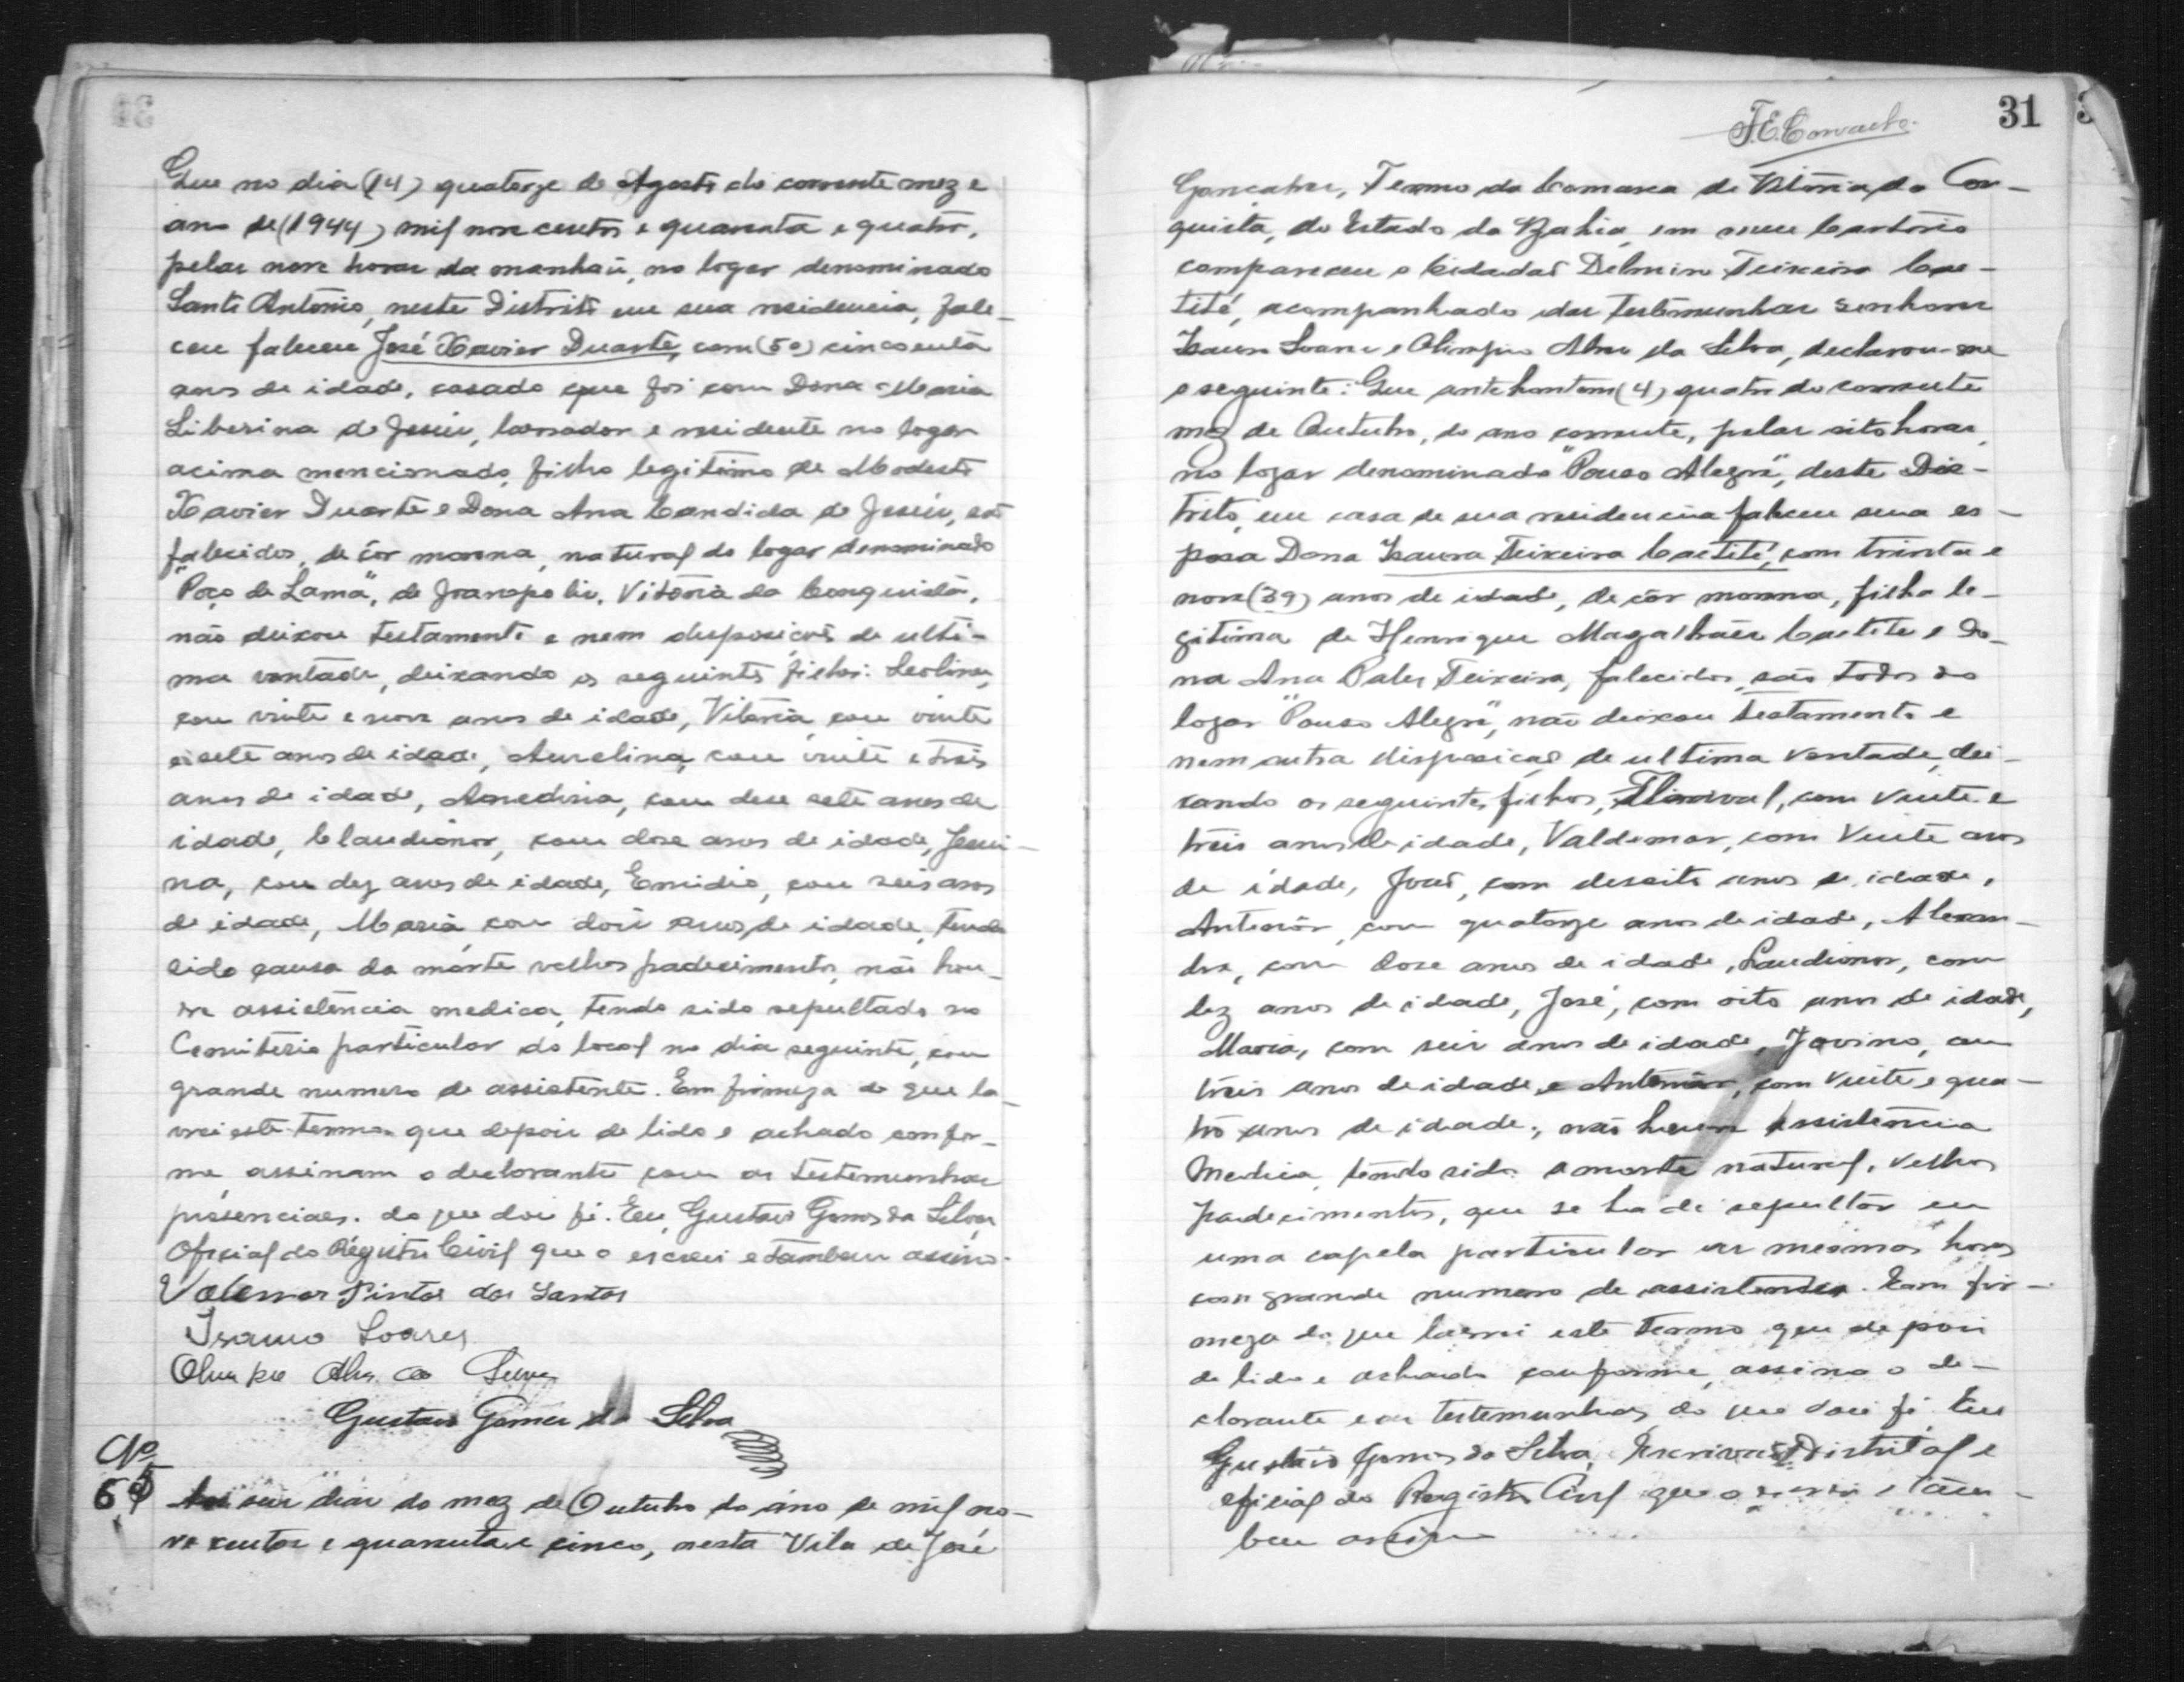 Que no dia (14) quatorze de Agosto do corrente mez e
ano de (1944) mil nove centos e quarenta e quatro,
pelas nove horas da manhaũ, no logar denominado
Santo Antônio, neste Distrito em sua residencia, fale-
ceu faleceu José Xavier Duarte, com (50) cincoenta
anos de idade, casado que foi com Dona Maria
Liberina de Jesús, lavrador e residente no logar
acima mencionado, filho legitimo de Modesto
Xavier Duarte e Dona Ana Candida de Jesús, são
falecidos, de côr morena, natural do logar denominado
"Poço de Lama", de Iranopolis, Vitória da Conquista,
não deixou testamento e nem disposição de ulti-
ma vontade, deixando os seguintes filhos: Leolina,
com vinte e nove anos de idade, Vitória, com vinte
e sete anos de idade, Aurelina, com vinte e trêis
anos de idade, com dese sete anos de
idade, Claudionor, com dose anos de idade, Jesui-
na, com dez anos de idade, Emidio, com seis anos
de idade, Maria com dois anos de idade, tendo
sido causa da morte velhos padecimentos, não hou-
ve assistência medica, tendo sido sepultado no
Cemiterio particular do local no dia seguinte, com
grande numero de assistente. Em firmeza do que la-
vrei este termo que depois de lido e achado confor-
me, assinam o declarante com as testemunhas
presenciaes. do que dou fé. Eeu, Gustavo Gomes da Silva,
Oficial do Registro Civil que o escrevi e tambem assino.
Valemar Pintos dos Santos
Isauro Soares
Olimpio Alves da Silva
Gustavo Gomes da Silva
Nº
6
Aos seis dias do mez de Outubro do ano de mil no-
ve centos e quarenta e cinco, nesta Vila de José
31
Gonçalves, Termo da Comarca de Vitória da Con-
quista, do Estado da Bahia, em meu Cartório
compareceu o Cidadão Delmiro Teixeira Cae-
tité, acompanhado das testemunhas senhores
Isauro Soares e Olimpio Alves da Silva, declarou-me
o seguinte: Que antehontem (4) quatro do corrente
mez de Outubro, do ano corrente, pelas oito horas,
no logar denominado "Pouso Alegre", deste Dis-
trito, em casa de sua residencia faleceu sua es-
posa Dona Isaura Teixeira Caetité, com trinta e
nove (39) anos de idade, de côr morena, filha le-
gitima de Henrique Magalhães Caetite e Do-
na Ana Teixeira, falecidos, são todos do
logar "Pouso Alegre", não deixou testamento e
nem outra disposição de ultima vontade, dei-
xando os seguintes filhos, com vinte e
trêis anos de idade, Valdemar, com vinte anos
de idade, com desoito anos de idade,
Antenôr, com quatorze anos de idade, Alexan-
dre, com dose anos de idade, Laudionor, com
dez anos de idade, José, com oito anos de idade,
Maria, com seis anos de idade, Jovino, com
trêis anos de idade, e Antenôr, com vinte e qua-
tro anos de idade; não houve assistência
medica, tendo sido a morte natural, velhos
padecimentos, que se ha de sepultar em
uma capela particular as mesmas horas
com grande numero de assistentes. Eem fir-
meza do que lavrei este termo que depois
de lido e achado conforme, assino o de-
clarante e as testemunhas, do que dou fé. Eeu
Gustavo Gomes da Silva, Escrivão Distrital e
oficial do Registro Civil que o escrevi e tam-
bem assino